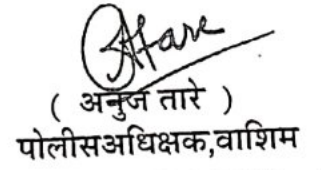 ( अनुज तारे )
पोलीसअधिक्षक,वाशिम